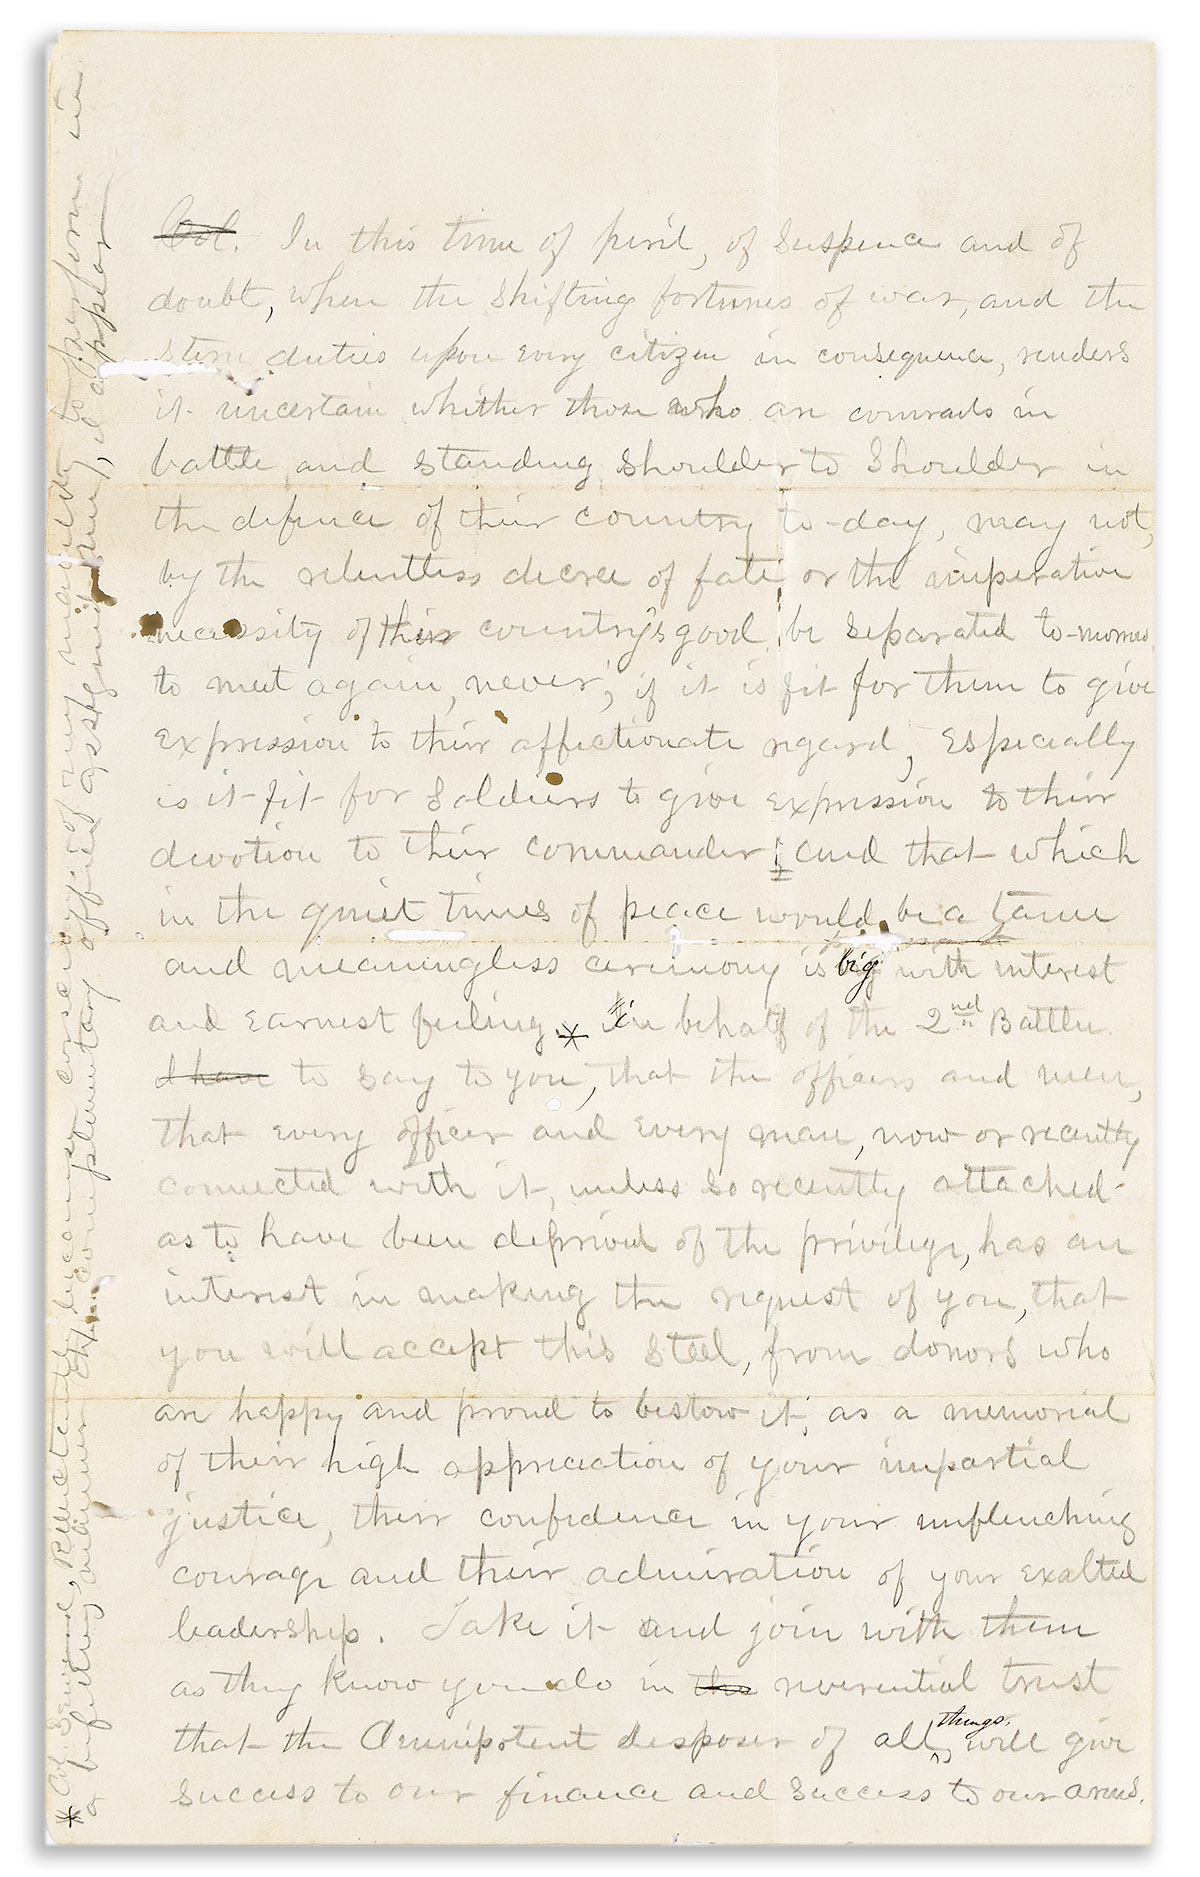 Col. In this time of peril, of Suspence and of
doubt, when the Shifting fortunes of war, and the
stern duties upon every citizen in consequence, renders
it uncertain whether those who are comrads in
battle and standing Shoulder to Shoulder in
the defence of their country to-day, may not,
by the relentless decree of fate or the imperative
necessity of their country's good, be Separated to-morrow,
to meet again, never; if it is fit for them to give
expression to their affectionate regard, Especially
is it fit for Soldiers to give expression to their
devotion to their commander; and that which
in the quiet times of peace would be a tame
and meaningless ceremony is big with interest
and earnest feeling. * in behalf of the 2nd Battln.
I have to Say to you, that the officers and men,
that every officer and every man, now or recently
connected with it, unless So recently attached
as to have been deprived of the privilege, has an
interest in making the request of you, that
you will accept this Steel, from donors who
are happy and proud to bestow it, as a memorial
of their high appreciation of your impartial
justice, their confidence in your unflenching
courage and their admiration of your exalted
leadership. Take it and join with them
as they know you do in the reverential trust
that the Omnipotent disposer of all things, will give
Success to our finance and Success to our arms.
* Col. Reluctantly because conscious of my inability to perform in
a befitting manner the complimentary office assigned me, I appear